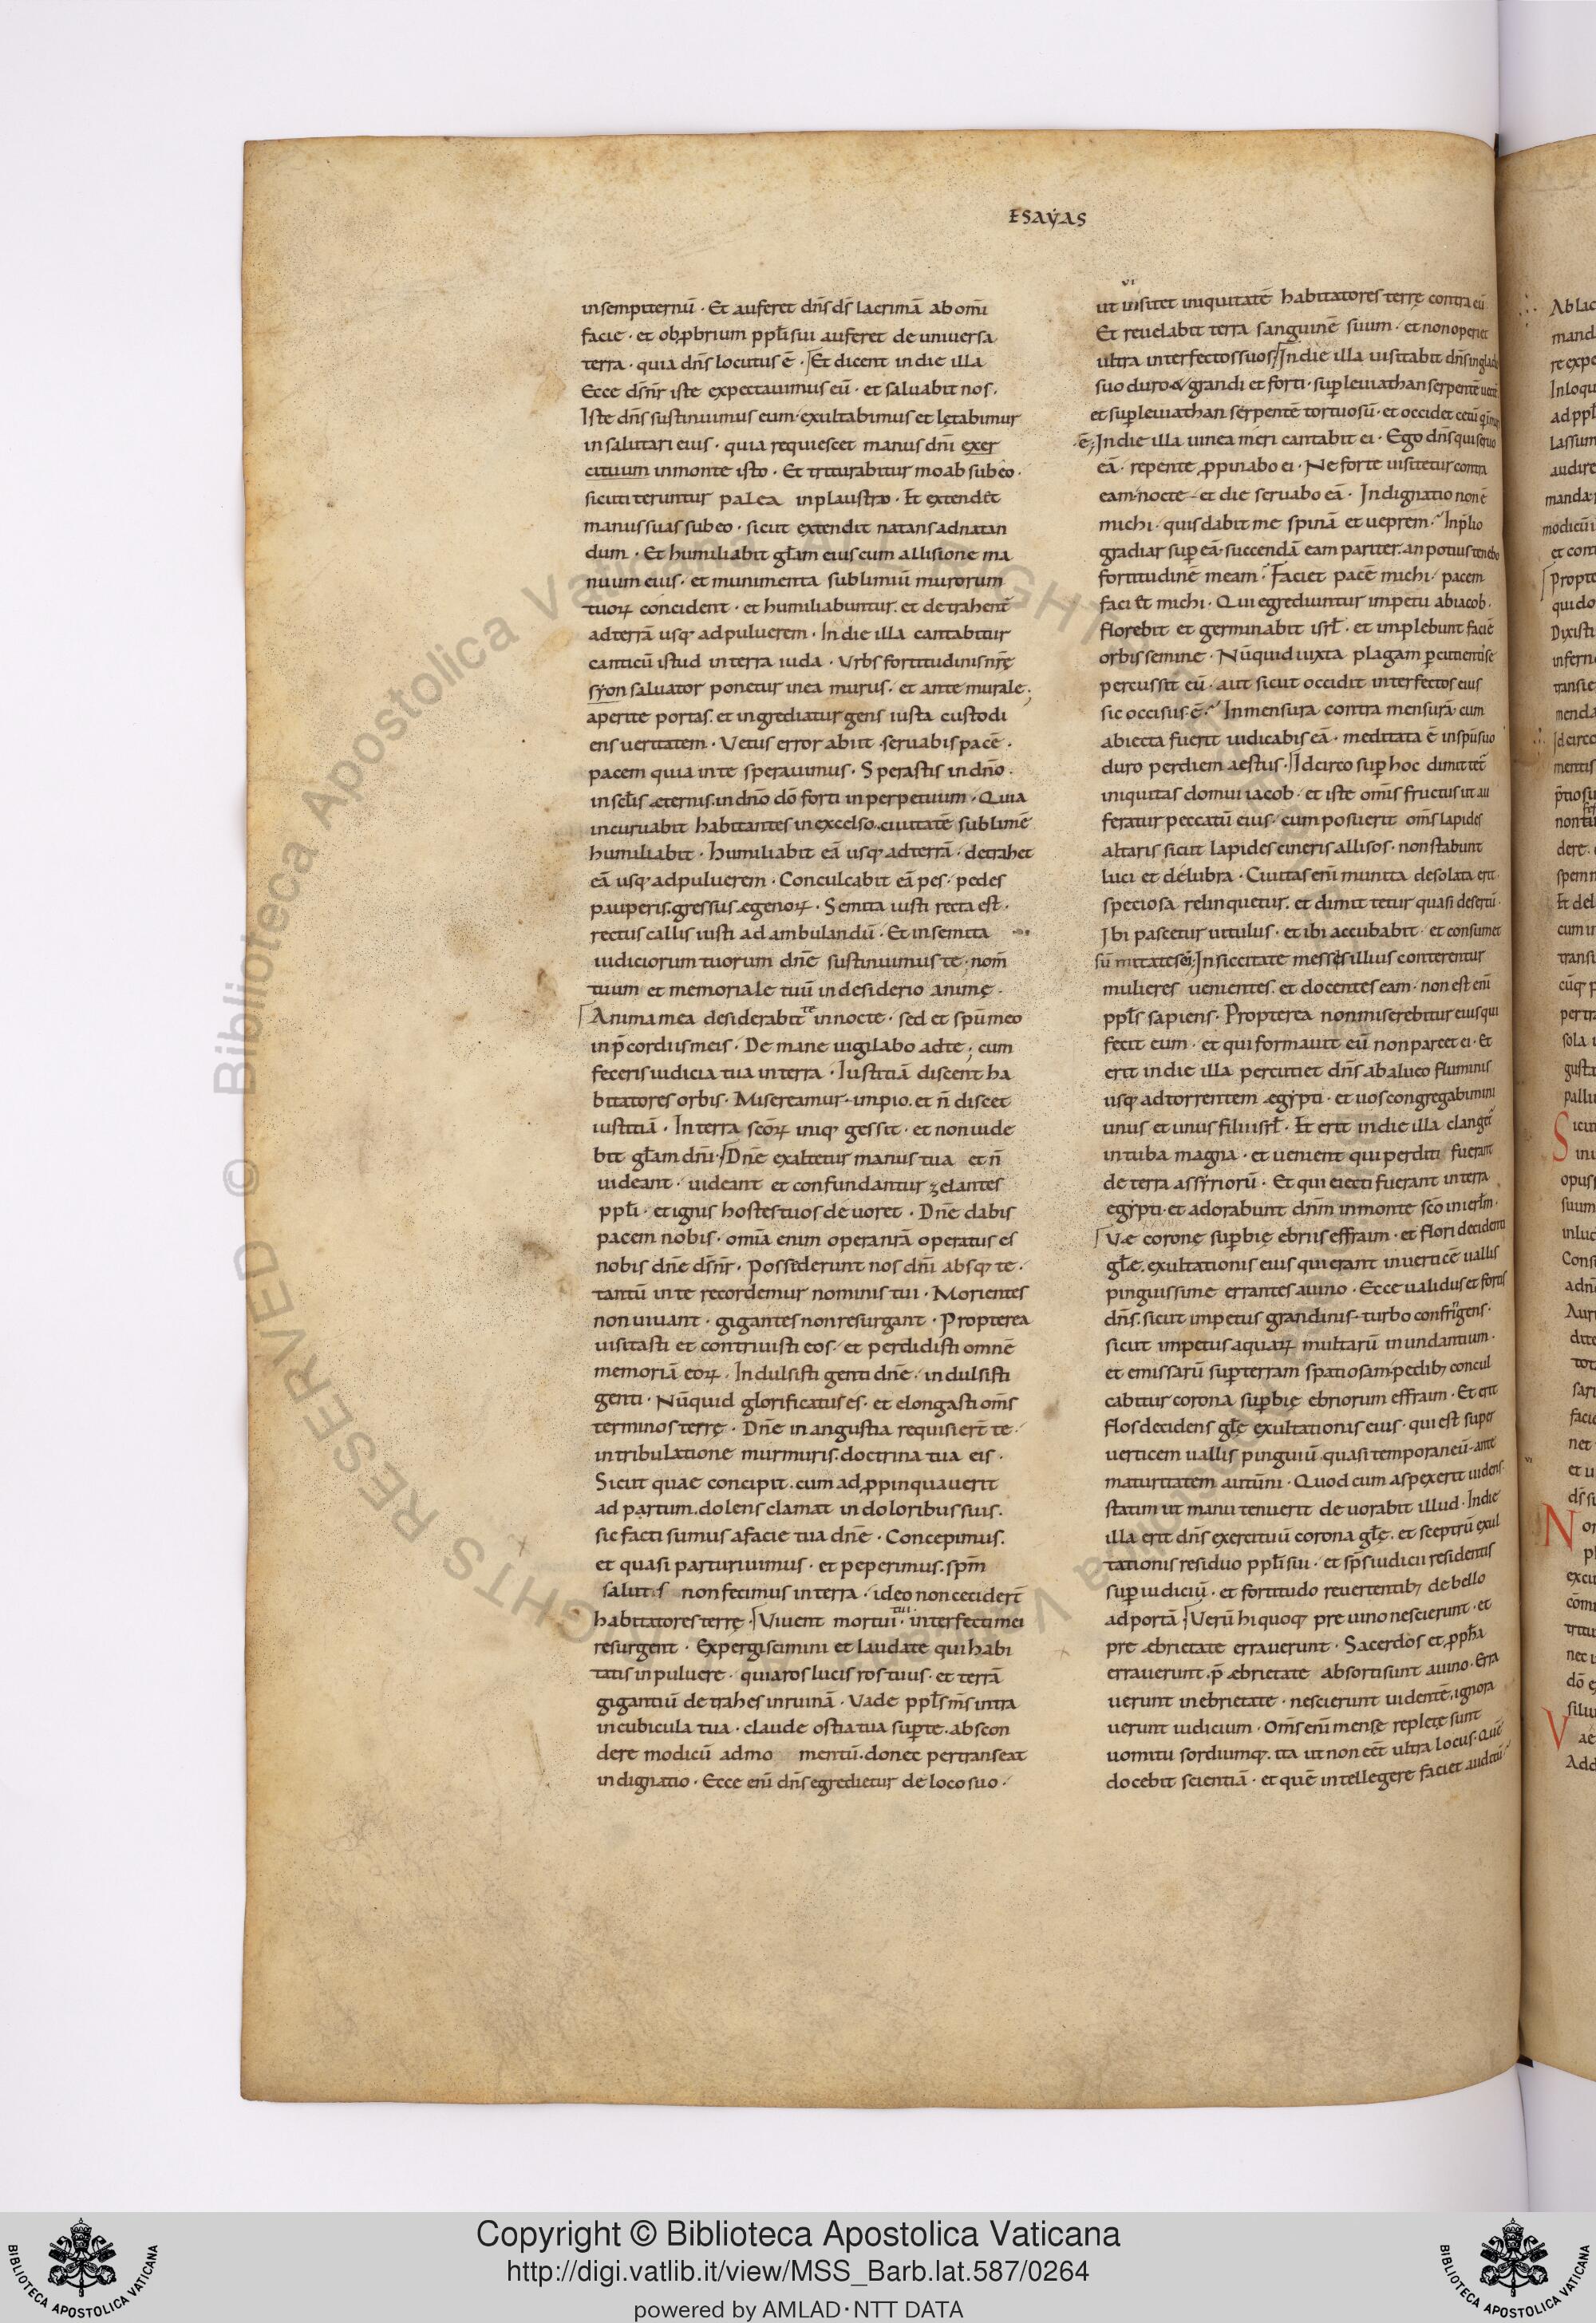 ESAẎAS
in sempiternū · Et auferet dn̄s ds̄ lacrimā ab om̄i
facie · et obꝓbrium ppl̄i sui auferet de universa
terra · quia dn̄s locutus ē · Et dicent in die illa
Ecce ds̄ nr̄ iste expectavimus eū · et salvabit nos ·
Iste dn̄s sustinuimus eum · exultabimus et lętabimur
in salutari eius · quia requiescet manus dn̄i exer
cituum in monte isto · Et triturabitur moab sub eo ·
sicuti teruntur palea in plaustro · Et extendet
manus suas sub eo · sicut extendit natans ad natan
dum · Et humiliabit gl̄am eius cum allisione ma
nuum eius · et munimenta sublimiū murorum
tuoꝝ concident · et humiliabuntur · et detrahent̄
ad terrā usqꝫ ad pulverem · In die illa cantabitur
canticū istud in terra iuda · Urbs fortitudinis nr̄ę
syon salvator ponetur in ea murus · et ante murale ;
aperite portas · et ingrediatur gens iusta custodi
ens veritatem · Vetus error abiit · servabis pacē ·
pacem quia in te speravimus · Sperastis in dn̄o ·
in scl̄is æternis · in dn̄o dō forti in perpetuum · Quia
incurvabit habitantes in excelso · civitatē sublimē
humiliabit · humiliabit eā usqꝫ ad terrā · detrahet
eā usqꝫ ad pulverem · Conculcabit eā pes · pedes
pauperis · gressus egenoꝝ · Semita iusti recta est ·
rectus callis iusti ad ambulandū · Et in semita
iudiciorum tuorum dn̄e sustinuimus te · nom̄
tuum et memoriale tuū in desiderio animę ·
Anima mea desiderabit te in nocte · sed et spū meo
in p̄cordiis meis · De mane vigilabo ad te ; cum
feceris iudicia tua in terra · Iustitiā discent ha
bitatores orbis · Misereamur impio · et n̄ discet
iustitiā · In terra scōꝝ iniqꝫ gessit · et non vide
bit gl̄am dn̄i · Dn̄e exaltetur manus tua et n̄
videant · videant et confundantur zelantes
ppl̄i · et ignis hostes tuos devoret · Dn̄e dabis
pacem nobis · omīa enim opera nr̄a operatus es
nobis dn̄e ds̄ nr̄ · Possederunt nos dn̄i absqꝫ te ·
tantū in te recordemur nominis tui · Morientes
non vivant · gigantes non resurgant · Propterea
visitasti et contrivisti eos · et perdidisti omnē
memoriā eoꝝ · Indulsisti genti dn̄e · indulsisti
genti · Nūquid glorificatus es · et elongasti om̄s
terminos terrę · Dn̄e in angustia requisier̄t te ·
in tribulatione murmuris · doctrina tua eis ·
Sicut quae concipit · cum adꝓpinquaverit
ad partum · dolens clamat in doloribus suis ·
sic facti sumus a facie tua dn̄e · Concepimus ·
et quasi parturivimus · et peperimus · spm̄
salutis non fecimus in terra · ideo non cecider̄t
habitatores terrę · Vivent mortui tui · interfecti mei
resurgent · Expergiscimini et laudate qui habi
tatis in pulvere · quia ros lucis ros tuus · et terrā
gigantiū detrahes in ruinā · Vade ppl̄s m̄s intra
in cubicula tua · claude ostia tua sup̱ te · abscon
dere modicū ad mo mentū · donec pertranseat
indignatio · Ecce eni̅ dn̄s egredietur de loco suo ·
VI
ut visitet iniquitatē habitatores terrę contra eū
Et revelabit terra sanguinē suum · et non operiet
ultra interfectos suos ; In die illa visitabit dn̄s in gladio
suo duro & grandi et forti · sup̱ leviathan serpentē vectē
et sup̱ leviathan serpentē tortuosū · et occidet cetū q̄ in mari
ē ; In die illa vinea meri cantabit ei · Ego dn̄s qui servo
eā · repente ꝓpinabo ei · Ne forte visitetur contra
eam · nocte et die servabo eā · Indignatio non ē
michi · quis dabit me spinā et veprem · In p̄lio
gradiar sup̱ eā · succendā eam pariter · an potius tenebo
fortitudinē meam · Faciet pacē michi · pacem
faciet michi · Qui egrediuntur impetu ab iacob ·
florebit et germinabit isrl̄ · et implebunt faciē
orbis semine · Nūquid iuxta plagam ꝑcutientis se
percussit eū · aut sicut occidit interfectos eius
sic occisus ē · In mensura contra mensurā · cum
abiecta fuerit iudicabis eā · meditata ē in spū suo
duro per diem aestus · Idcirco sup̱ hoc dimittet̄
iniquitas domui iacob · et iste om̄is fructus ut au
feratur peccatū eius · cum posuerit om̄s lapides
altaris sicut lapides cineris allisos · non stabunt
luci et delubra · Civitas eni̅ munita desolata erit ·
speciosa relinquetur · et dimittetur quasi desertū ·
Ibi pascetur vitulus · et ibi accubabit · et consumet
sūmitates ei᷒ ; In siccitate messes illius conterentur
mulieres venientes · et docentes eam · non est eni̅
ppl̄s sapiens · Propterea non miserebitur eius qui
fecit eum · et qui formavit eū non parcet ei · Et
erit in die illa percutiet dn̄s ab alveo fluminis
usqꝫ ad torrentem egypti · et vos congregabimini
unus et unus filii isrl̄ · Et erit in die illa clanget̄
in tuba magna · et venient qui perditi fuerant
de terra assyriorū · Et qui eiecti fuerant in terra
egypti · et adorabunt dn̄m in monte scō in ierl̄m ·
Væ coronę sup̱bię ebriis effraim · et flori decidenti
gl̄e · exultationis eius qui erant in verticē vallis
pinguissime errantes a vino · Ecce validus et fortis
dn̄s · sicut impetus grandinis · turbo confringens ·
sicut impetus aquaꝝ multarū inundantium ·
et emissarū sup̱ terram spatiosam · pedibꝫ concul
cabitur corona sup̱bię ebriorum effraim · Et erit
flos decidens gl̄e exultationis eius · qui est super
verticem vallis pinguiū · quasi temporaneū ante
maturitatem autūni · Quod cum aspexerit videns ·
statim ut manu tenuerit devorabit illud · In die
illa erit dn̄s exercituū corona gl̄ę · et sceptrū exul
tationis residuo ppl̄i sui · et sp̄s iudicii residentis
sup̱ iudiciū · et fortitudo revertentibꝫ de bello
ad portā · Verū hi quoqꝫ pre vino nescierunt · et
pre ebrietate erraverunt · Sacerdos et ꝓph̄a
erraverunt · p̄ ebrietate absorti sunt a vino · Erra
verunt in ebrietate · nescierunt videntē · ignora
verunt iudicium · Om̄s eni̅ mense replete sunt
vomitu sordiumqꝫ · ita ut non eēt ultra locus · Quē
docebit scientiā · et quē intellegere faciet auditū ·
Copyright © Biblioteca Apostolica Vaticana
http://digi.vatlib.it/view/MSS_Barb.lat.587/0264
powered by AMLAD · NTT DATA